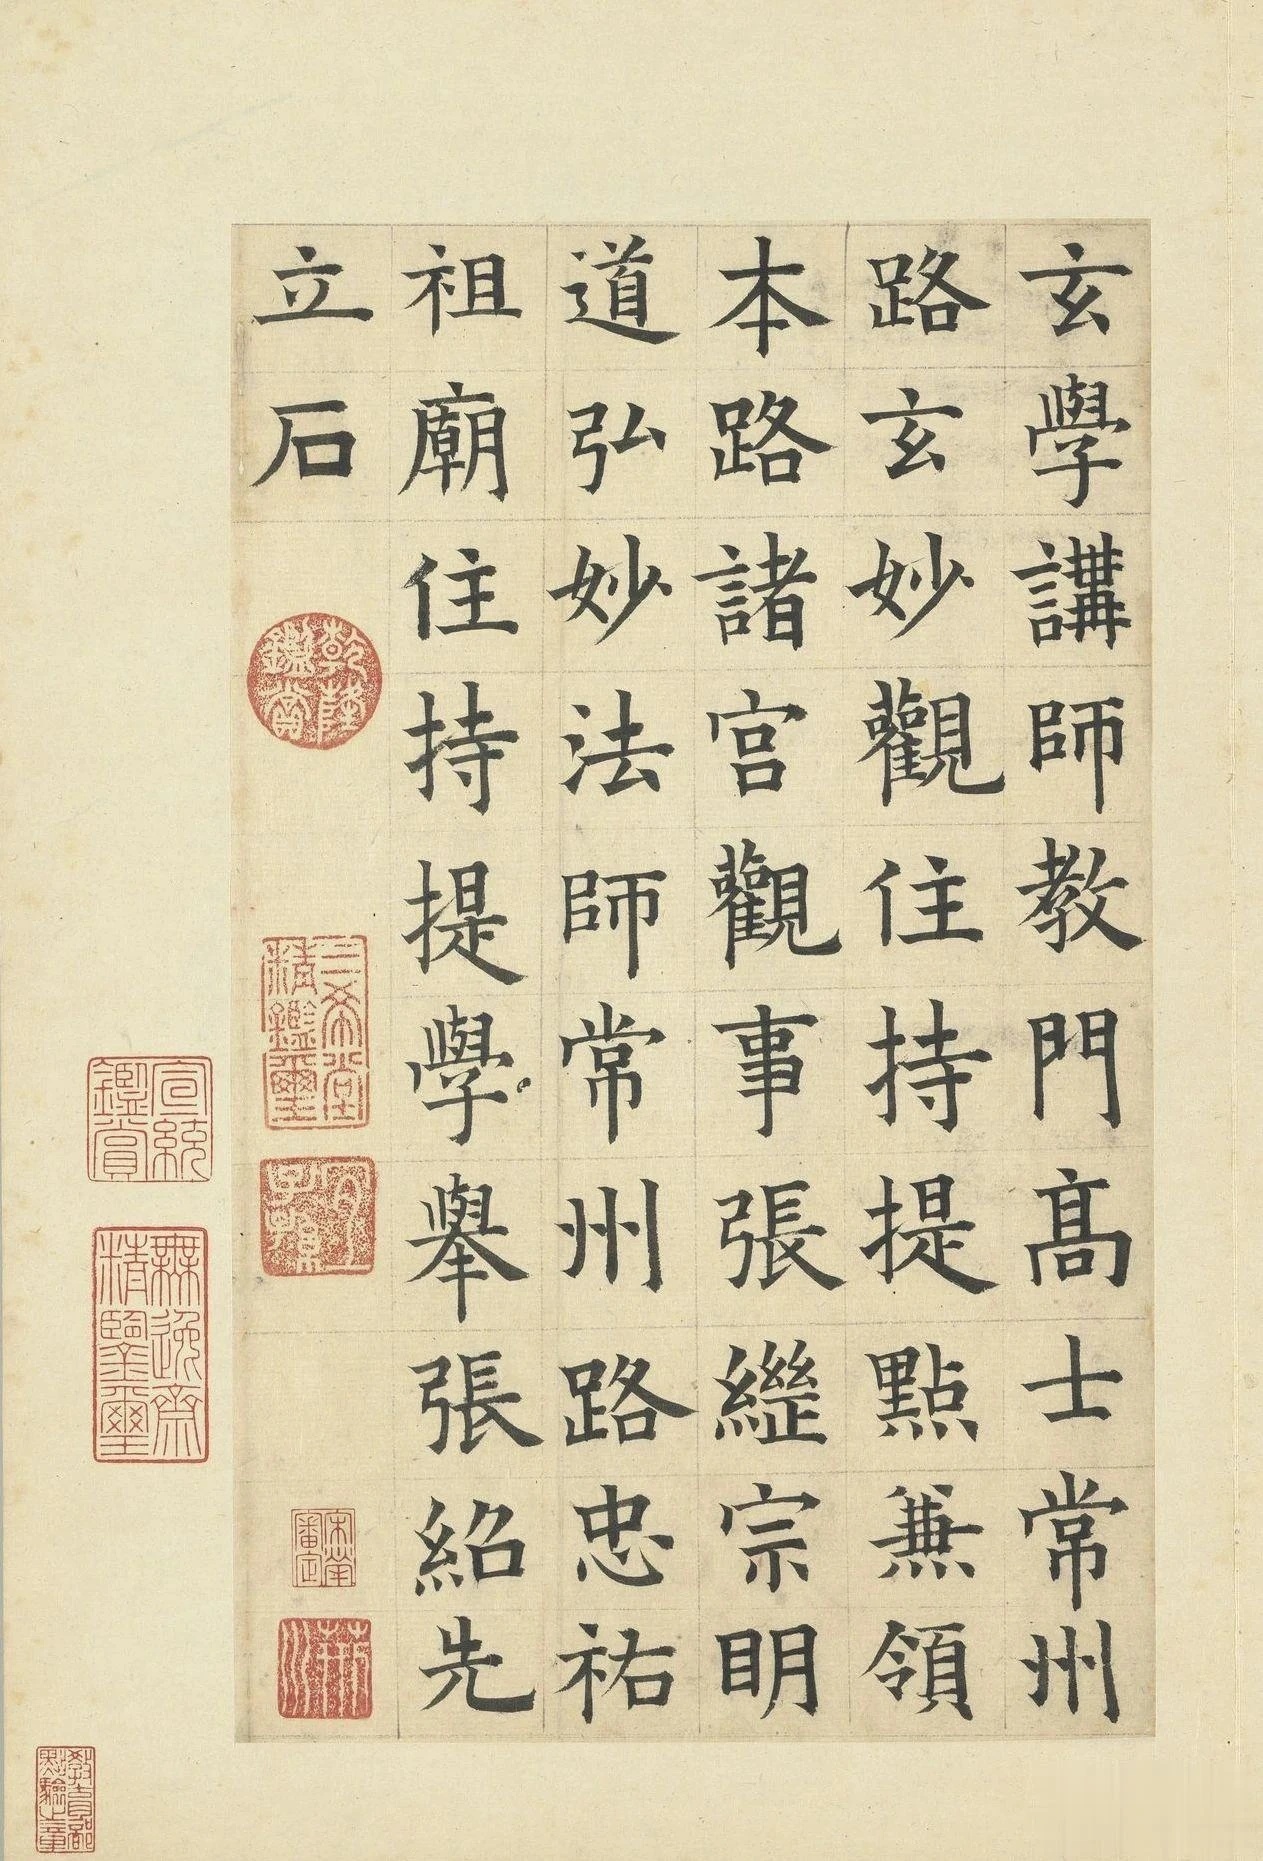 玄學講師教門高士常州
路玄妙觀住持提點兼領
本路諸宮觀事張繼宗明
道弘妙法師常州路忠祐
祖廟住持提學學舉張紹先
立石
乾隆鑑賞
三希堂精鑑璽
宜子孫
宋犖審定
宣統鑑賞
無逸齋精鑒璽
教育部點驗之章